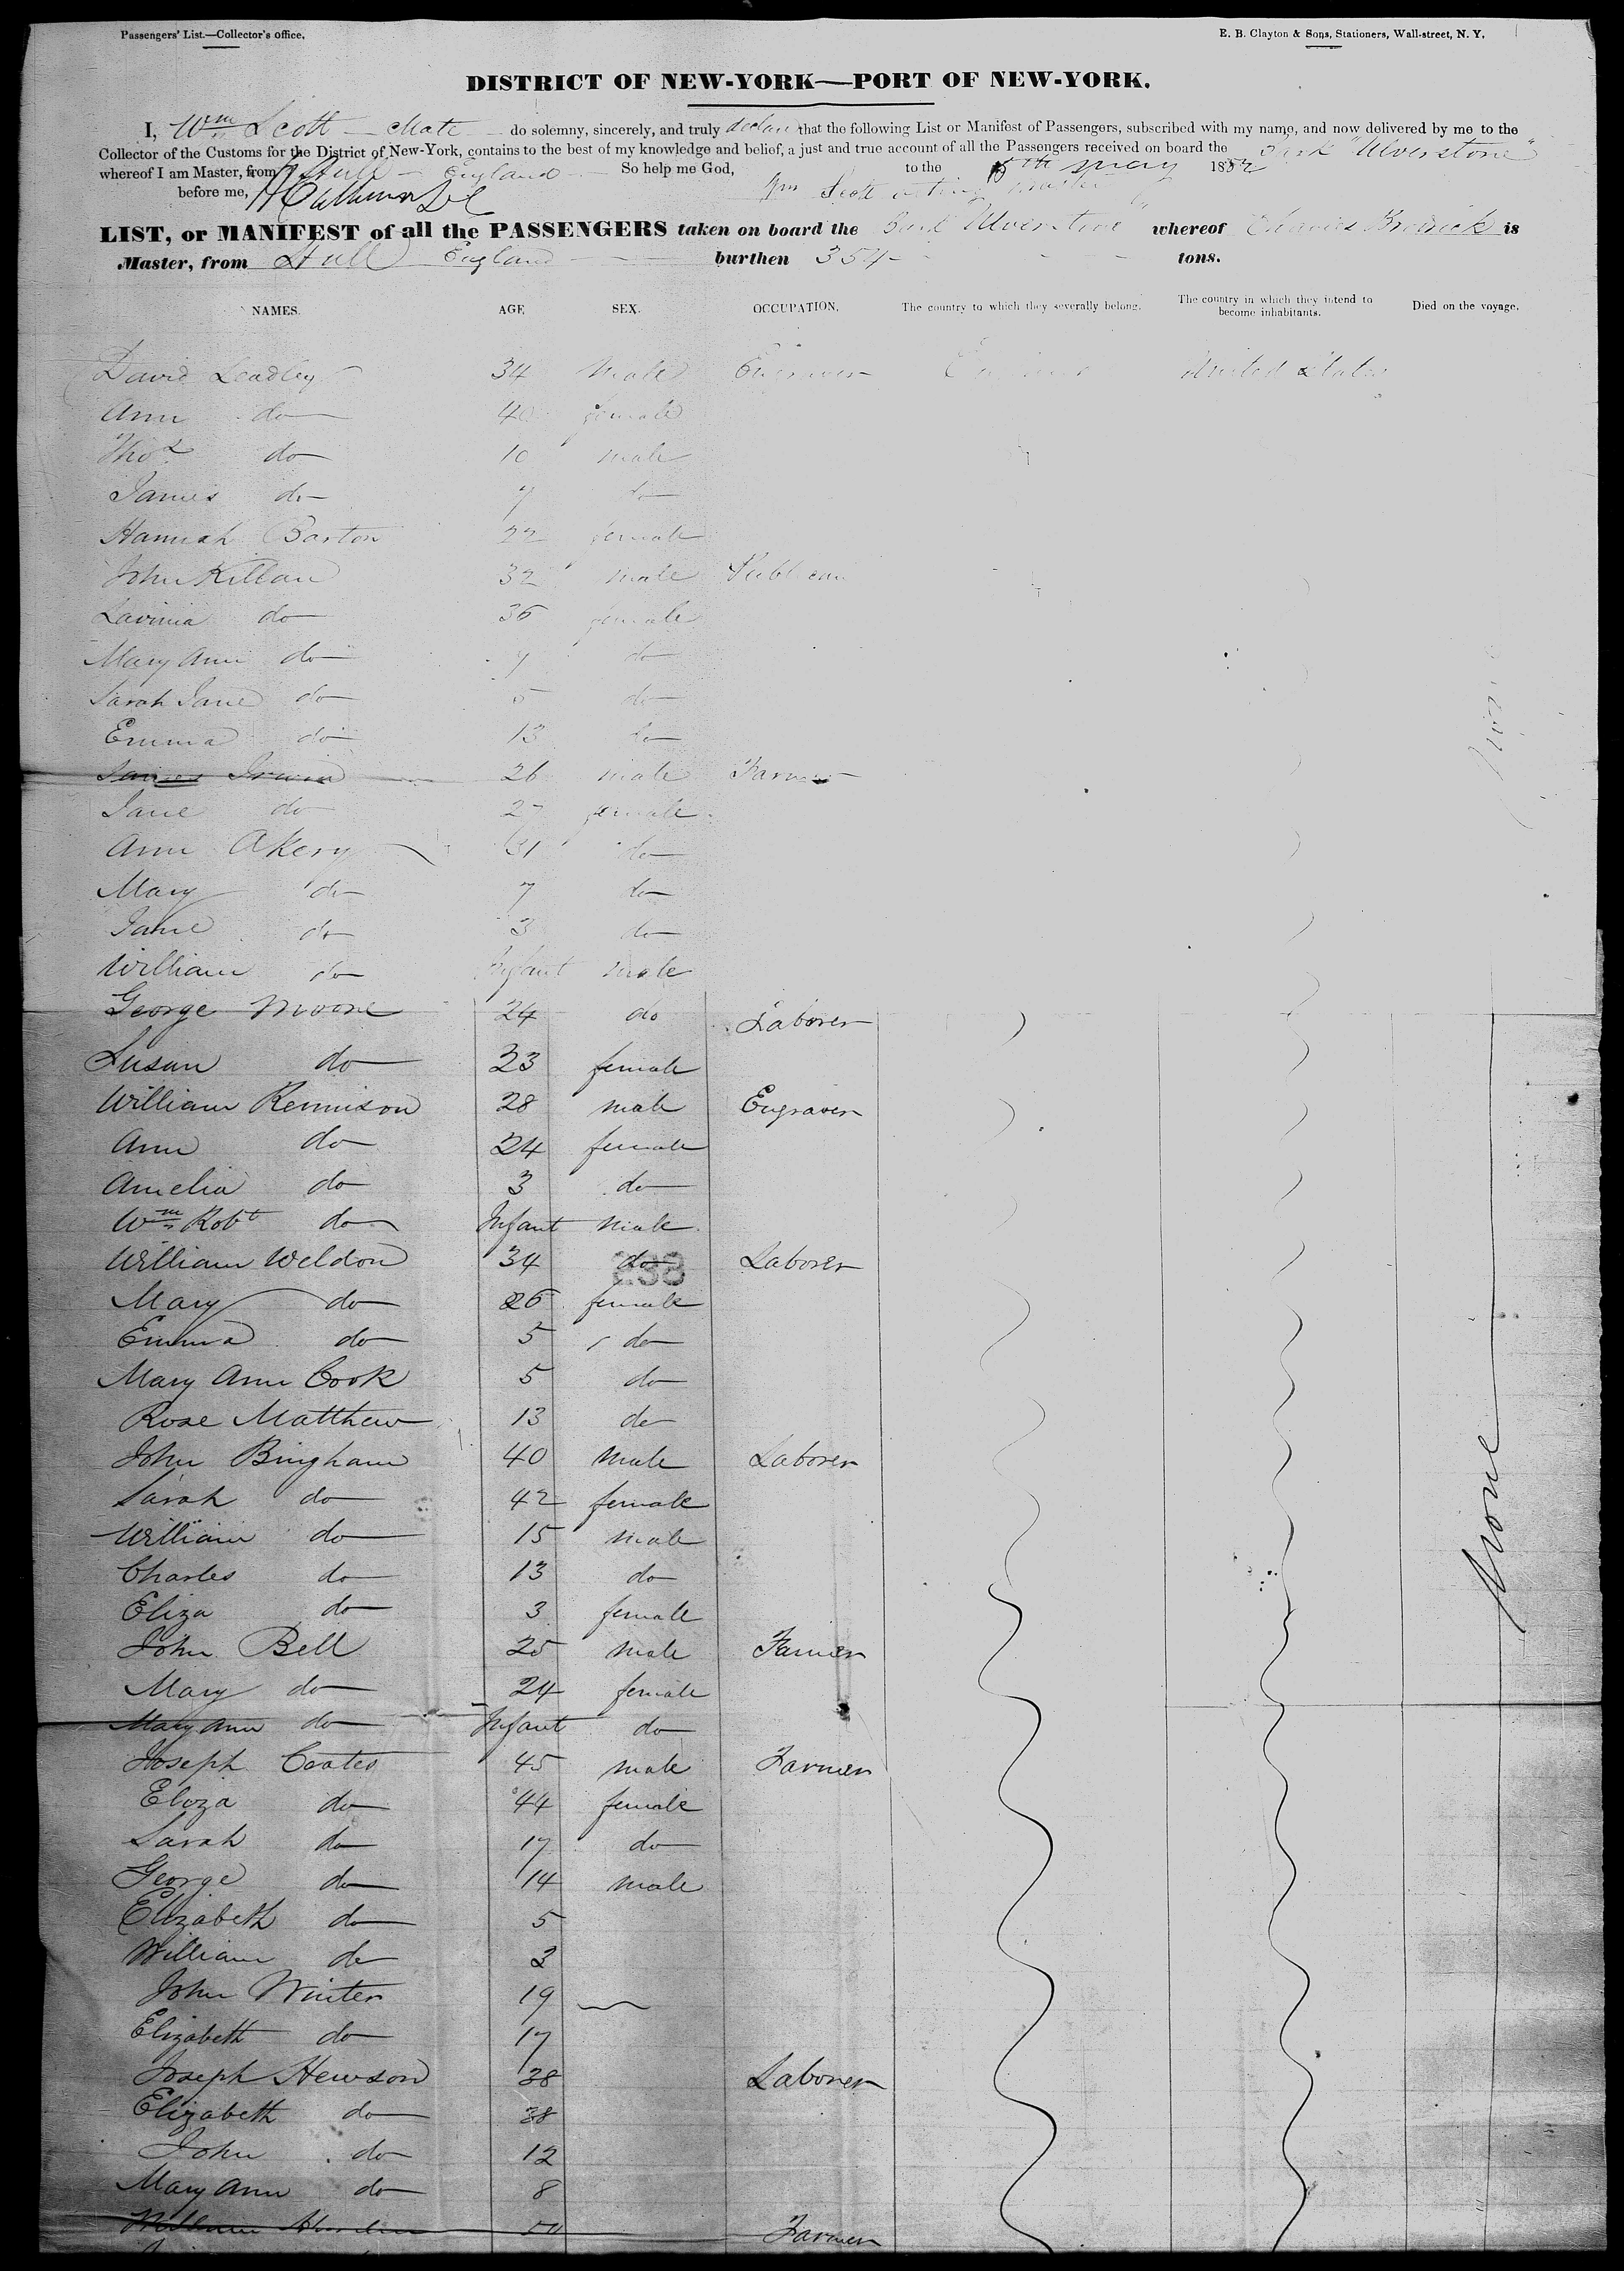 Passengers' List.—Collector's office.
E. B. Clayton & Sons, Stationers, Wall-street, N. Y.
DISTRICT OF NEW-YORK—PORT OF NEW-YORK.
I, Wm Scott — Mate do solemny, sincerely, and truly declare that the following List or Manifest of Passengers, subscribed with my name, and now delivered by me to the
Collector of the Customs for the District of New-York, contains to the best of my knowledge and belief, a just and true account of all the Passengers received on board the Bark "Ulverstone"
whereof I am Master, from Hull — England So help me God, to the May 1852
before me, Wm Scott acting master
LIST, or MANIFEST of all the PASSENGERS taken on board the Bark "Ulverstone" whereof Charles Brodrick is
Master, from Hull England burthen 354 tons.
NAMES. AGE SEX. OCCUPATION. The country to which they severally belong. The country in which they intend to become inhabitants. Died on the voyage.
David Leadley 34 Male Engraver England United States
Ann do 40 female
Thos do 10 male
James do 7 do
Hannah Barton 22 female
John Killan 32 male Publican
Lavinia do 36 female
Mary Ann do 7 do
Sarah Jane do 5 do
Emma do 13 do
James Irwin 26 male Farmer
Jane do 27 female
Ann Akery 31 do
Mary do 7 do
Jane do 3 do
William do Infant male
George Moore 24 do Laborer
Susan do 23 female
William Rennison 28 male Engraver
Ann do 24 female
Amelia do 3 do
Wm Robt do Infant male
William Weldon 34 do Laborer
238
Mary do 26 female
Emma do 5 do
Mary Ann Cook 5 do
Rose Matthew 13 do
John Bingham 40 male Laborer
Sarah do 42 female
William do 15 male
Charles do 13 do
Eliza do 3 female
None
John Bell 25 male Farmer
Mary do 24 female
Mary Ann do Infant do
Joseph Coates 45 male Farmer
Eliza do 44 female
Sarah do 17 do
George do 14 male
Elizabeth do 5
William do 3
John Winter 19
Elizabeth do 17
Joseph Hewson 38 Laborer
Elizabeth do 38
John do 12
Mary Ann do 8
William 50 Farmer